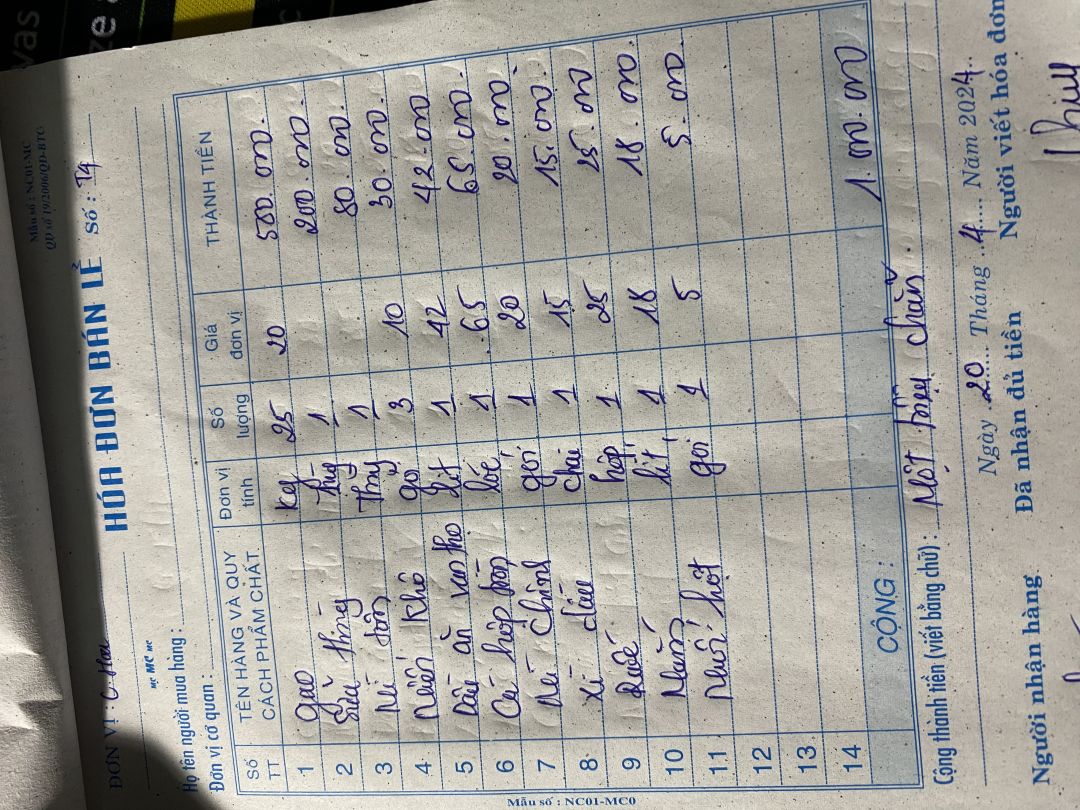 Mẫu số : NC01-MC
QĐ số 19/2006/QĐ-BTC
ĐƠN VỊ : C. Hoa HÓA ĐƠN BÁN LẺ Số : T4
MC
Họ tên người mua hàng :
Đơn vị cơ quan :
Số TT TÊN HÀNG VÀ QUY CÁCH PHẨM CHẤT Đơn vị tính Số lượng Giá đơn vị THÀNH TIỀN
1 gạo kg 25 20 500.000.
2 Sữa thùng 1 200.000.
3 Mì tôm thùng 1 80.000.
4 Miến khô gói 3 10 30.000.
5 Dầu ăn lít 1 42 42.000
6 Cá hộp lốc 1 65 65.000.
7 Mì chính gói 1 20 20.000.
8 Xì dầu chai 1 15 15.000.
9 hộp 1 25 25.000
10 Mắm lít 1 18 18.000.
11 Muối hột gói 1 5 5.000.
12
13
14
CỘNG : 1.000.000
Cộng thành tiền (viết bằng chữ) : Một triệu chẵn.
Ngày 20 Tháng 4 Năm 2024
Người nhận hàng Đã nhận đủ tiền Người viết hóa đơn
Mẫu số : NC01-MC0